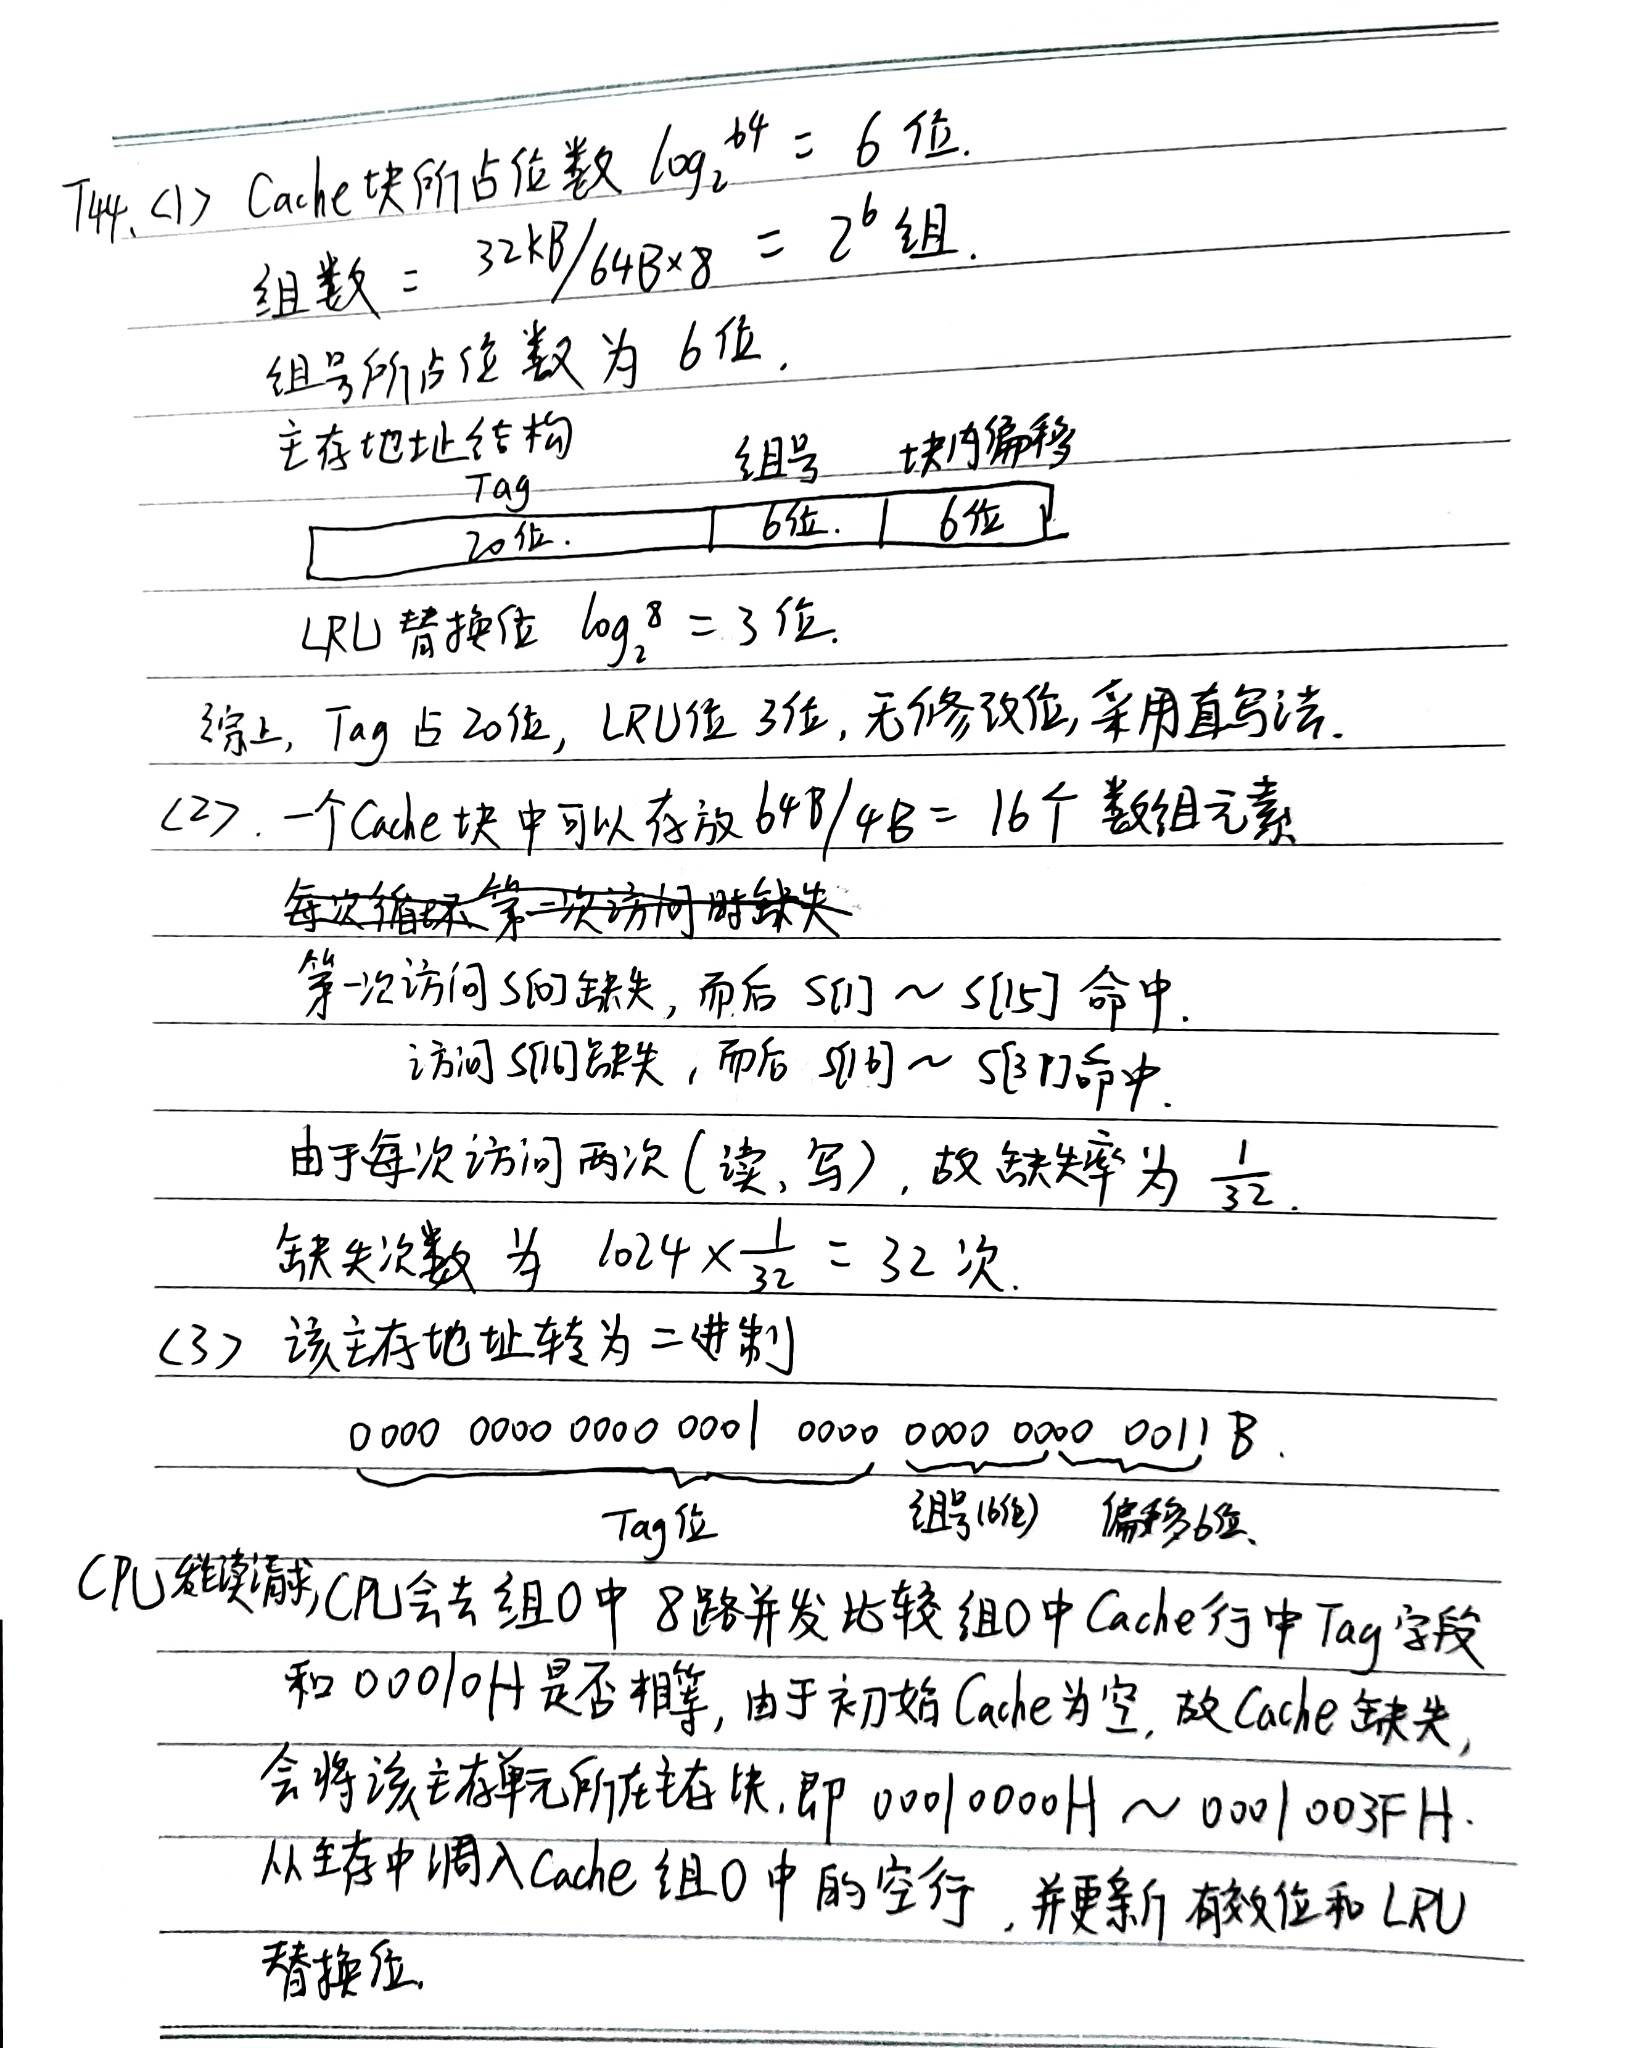 T44. (1) Cache块所占位数 log₂⁶⁴ = 6 位.
组数 = 32KB/64B×8 = 2⁶ 组.
组号所占位数为 6位.
主存地址结构
Tag 组号 块内偏移
20位. 6位. 6位
LRU替换位 log₂⁸ = 3 位.
综上, Tag 占 20位, LRU位 3位, 无修改位, 采用直写法.
(2). 一个Cache块中可以存放 64B/4B = 16个 数组元素
每次循环 第一次访问时缺失
第一次访问S[0]缺失, 而后 S[1] ~ S[15] 命中.
访问S[16]缺失, 而后 S[16] ~ S[31]命中.
由于每次访问两次(读、写), 故缺失率为 1/32.
缺失次数 为 1024 × 1/32 = 32 次.
(3) 该主存地址转为二进制
0000 0000 0000 0001 0000 0000 0000 0011 B.
Tag位 组号(6位) 偏移6位、
CPU发读请求, CPU会去组0中 8路并发比较组0中Cache行中Tag字段
和 00010H 是否相等, 由于初始Cache为空, 故Cache缺失,
会将该主存单元所在主存块, 即 00010000H ~ 0001003FH.
从主存中调入Cache 组0 中的空行, 并更新 有效位和 LRU
替换位.